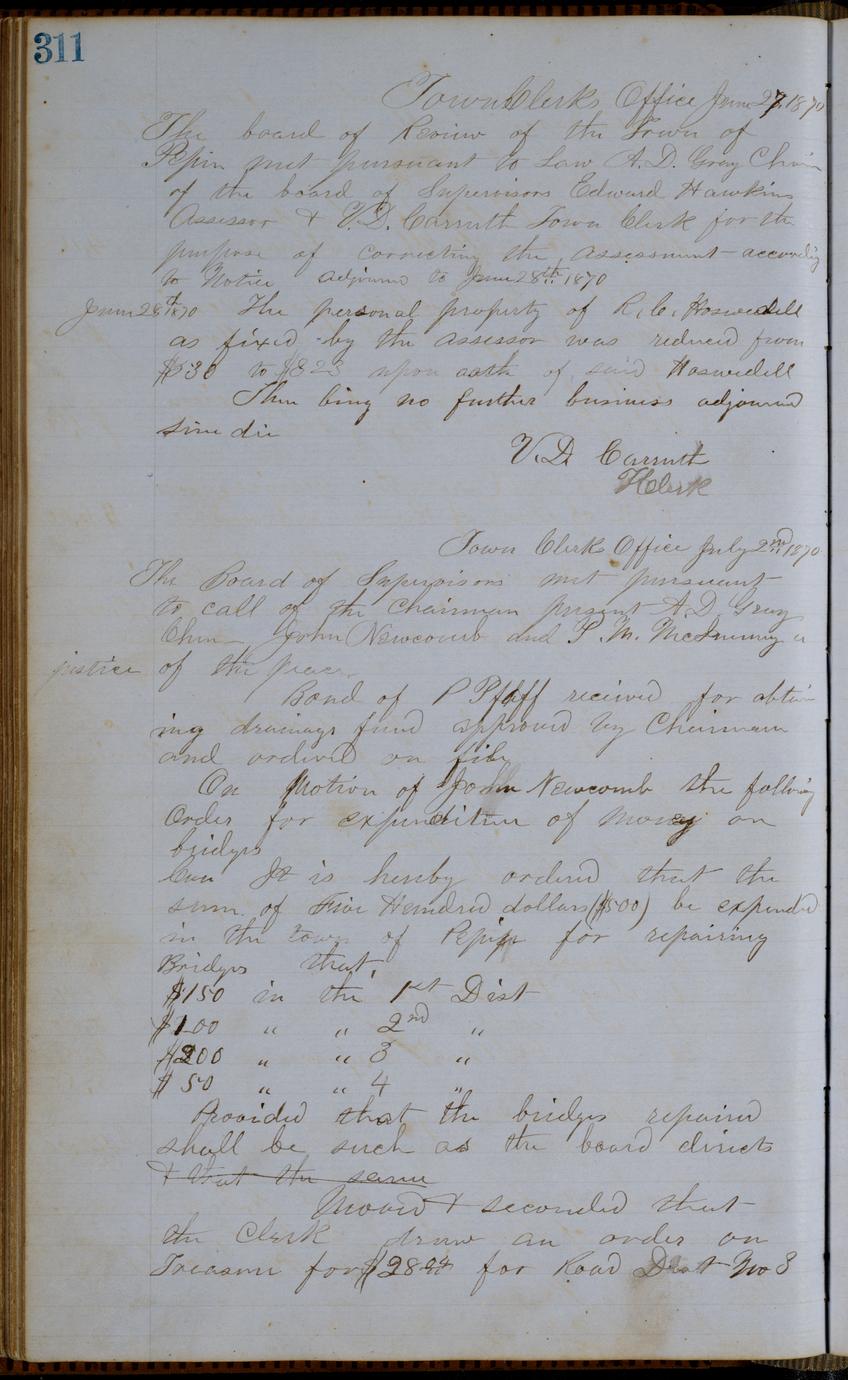 311
Town Clerks Office June 27, 1870
The board of Review of the Town of
Pepin met pursuant to Law A.D. Gray Chair
of the board of Supervisors Edward Hawkins
Assessor & V.D. Carruth Town Clerk for the
purpose of correcting the assessment according
to Notice adjourned to June 28th 1870
June 28th 1870 The personal property of R.C.
as fixed by the assessor was reduced from
to upon oath of said
Then being no further business adjourned
sine die
V.D. Carruth
T Clerk
Town Clerks Office July 2nd 1870
The Board of Supervisors met pursuant
to call of the Chairman present A.D. Gray
Chm John Newcomb and P.M. a
justice of the peace
Bond of P Pfaff received for obtain
ing drainage fund approved by Chairman
and ordered on file
On Motion of John Newcomb the following
Order for expenditure of money on
bridges
It is hereby ordered that the
sum of Five Hundred dollars ($500) be expended
in the town of Pepin for repairing
Bridges that
$150 in the 1st Dist
$100 " " 2nd "
$200 " " 3 "
$50 " " 4 "
Provided that the bridges repaired
shall be such as the board directs
& that the same
Moved & seconded that
the Clerk draw an order on
Treasurer for $28 for Road Dist No 3